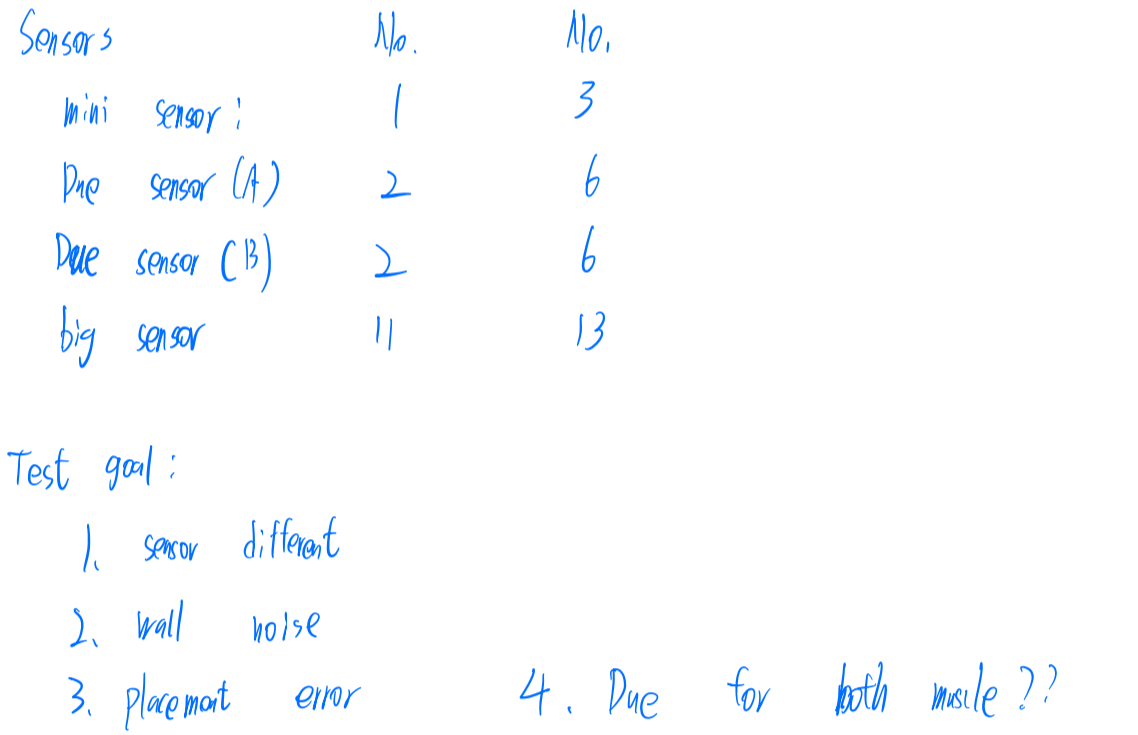 Sensors No. No.
mini sensor: 1 3
Due sensor (A) 2 6
Due sensor (B) 2 6
big sensor 11 13
Test goal:
1. sensor different
2. wall noise
3. placement error 4. Due for both muscle ??